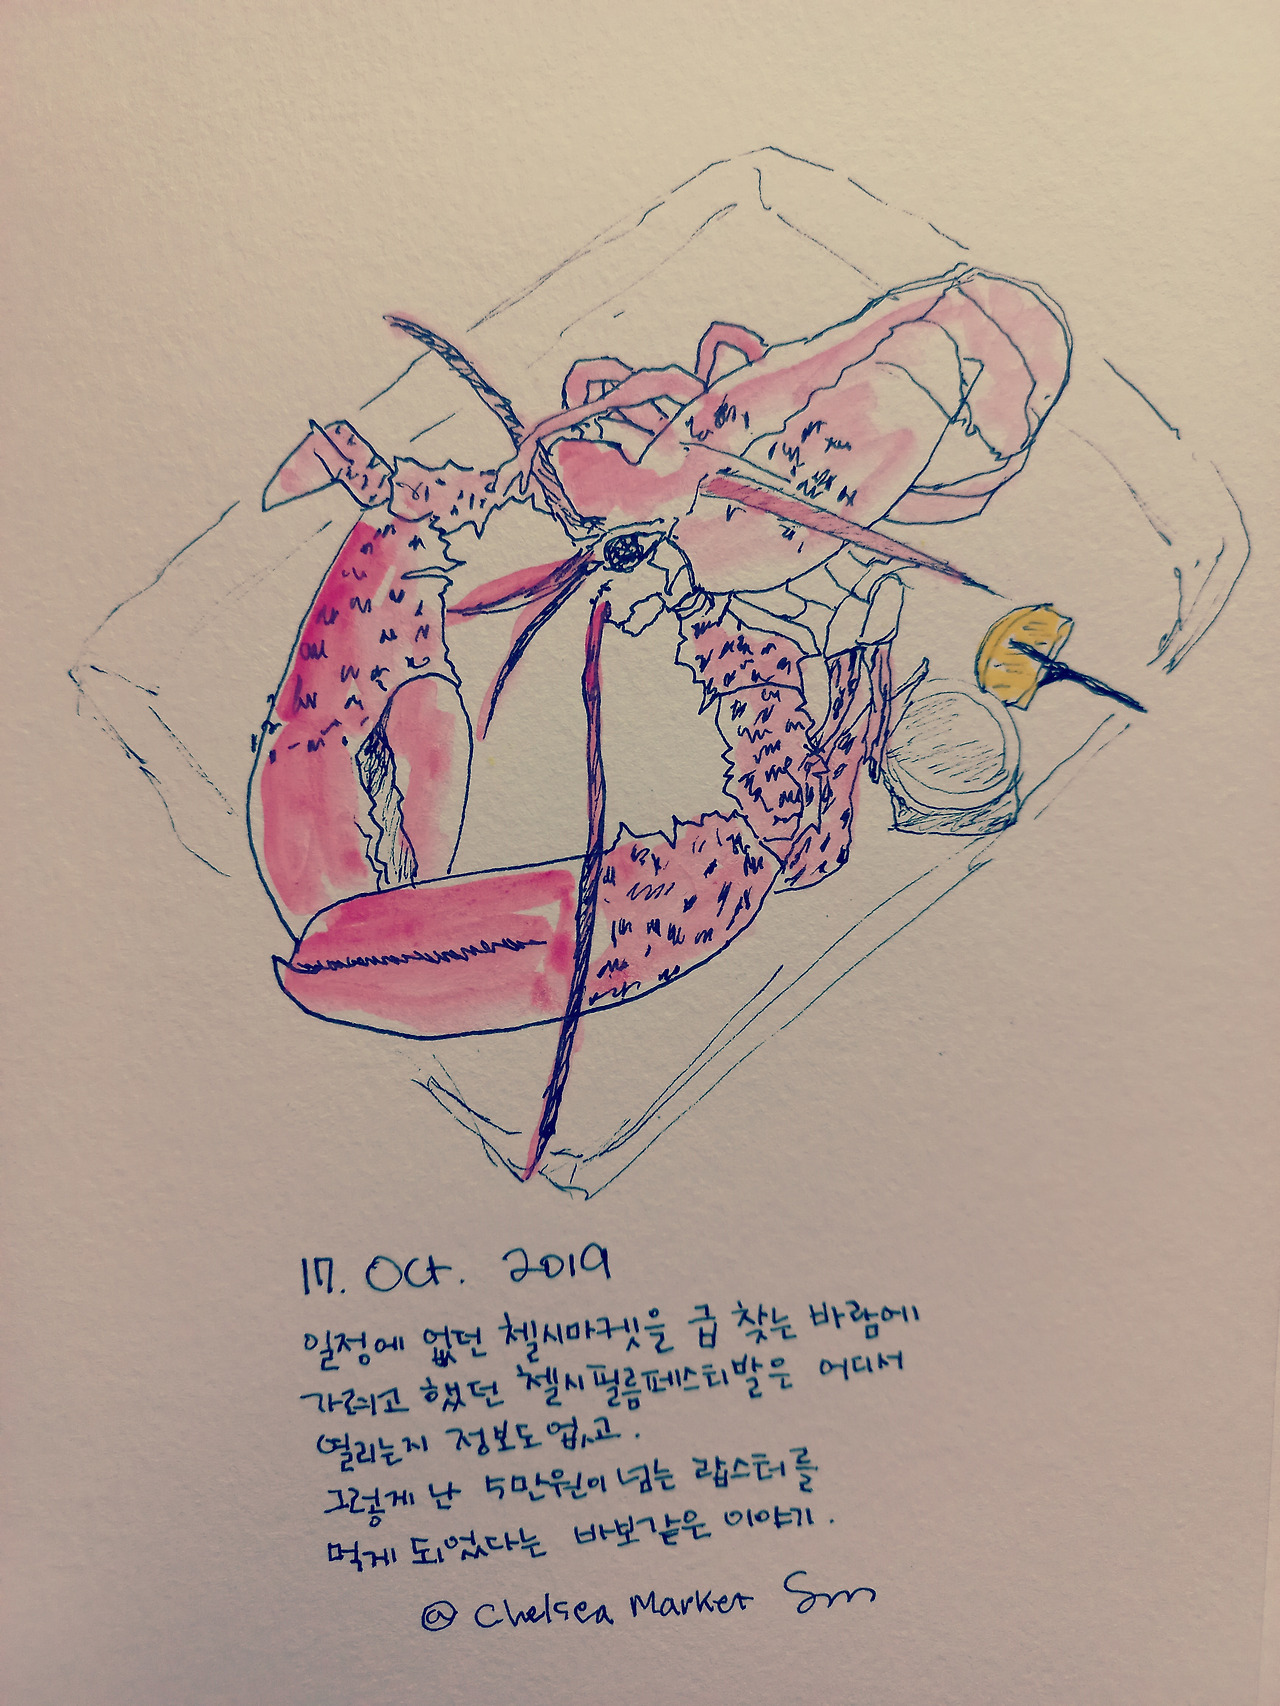 17. Oct. 2019
일정에 없던 첼시마켓을 급 찾는 바람에
가려고 했던 첼시필름페스티발은 어디서
열리는지 정보도 없고.
그렇게 난 5만원이 넘는 랍스터를
먹게 되었다는 바보같은 이야기.
@ Chelsea Market Sm